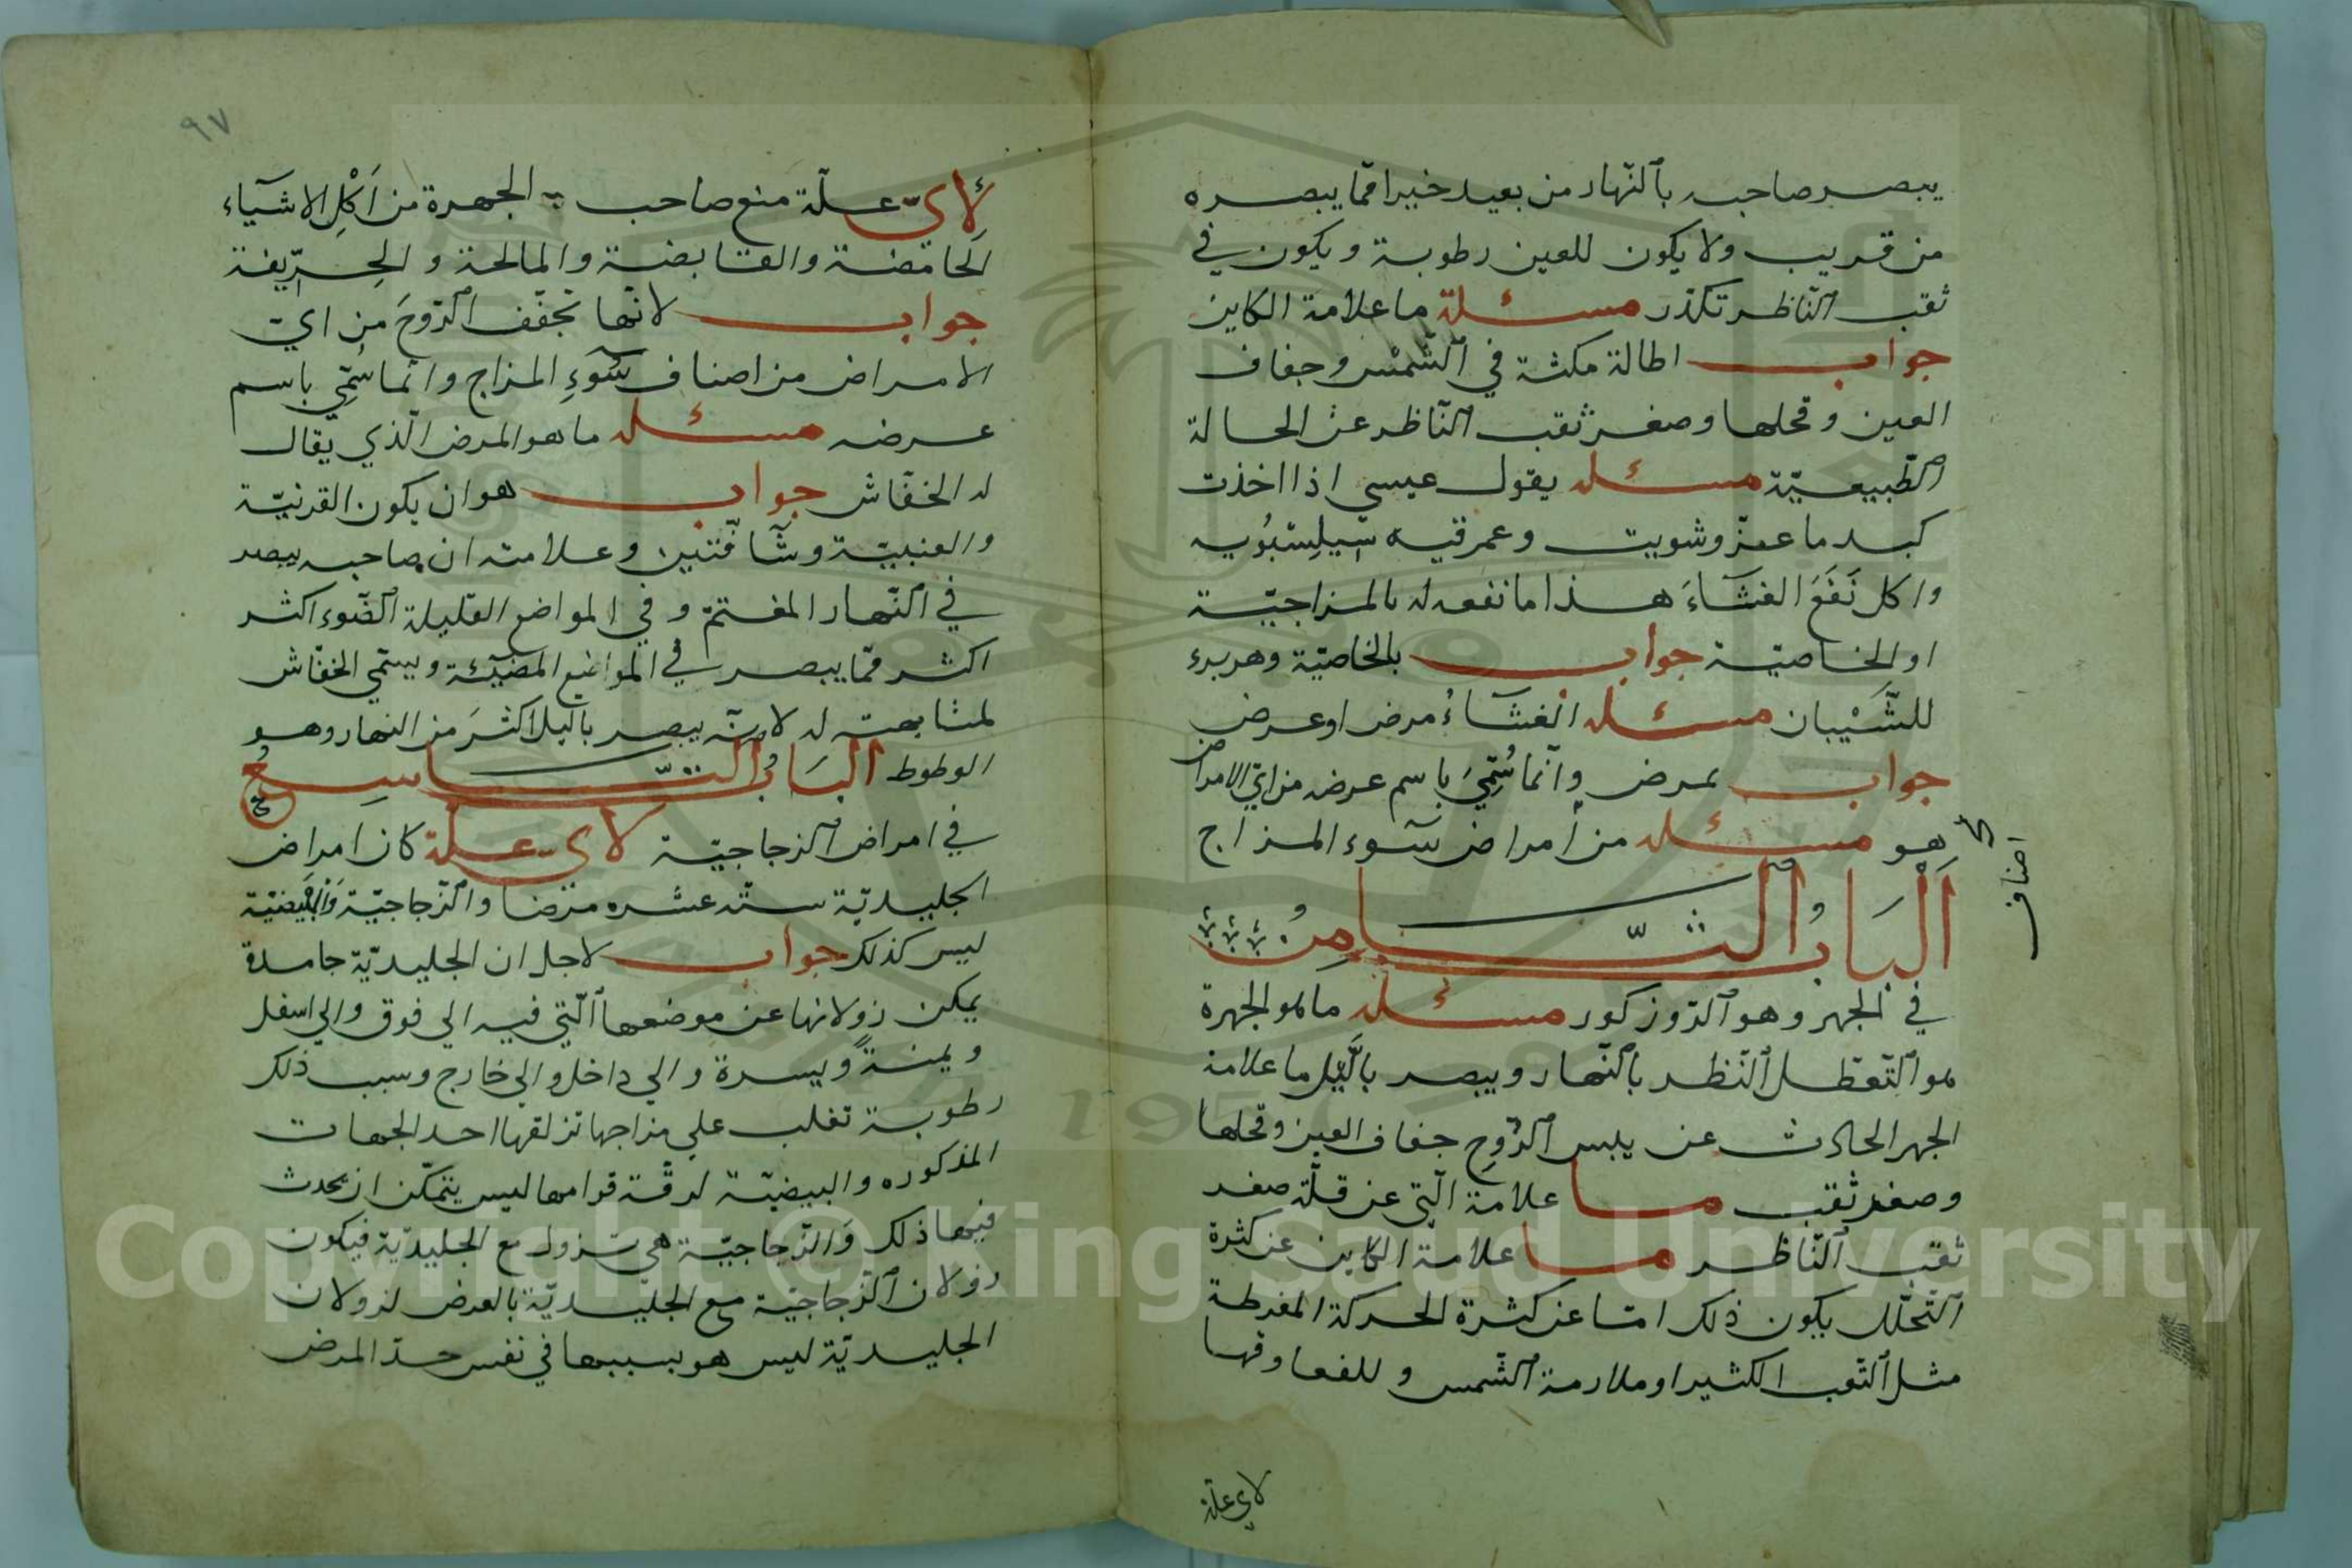 يبصر صاحبه بالنّهار من بعيد خيرا ممّا يبصره
من قريب ولا يكون للعين رطوبة ويكون في
ثقب النّاظر تكدّر مسئلة ما علامة الكاين
جواب اطالة مكثه في الشّمس وجفاف
العين وقحلها وصغر ثقب النّاظر عن الحالة
الطّبيعيّة مسئله يقول عيسى اذا اخذت
كبد ماعز وشويت
واكل نَفَعَ العَشَآءَ هذا ما نفعه له بالمزاجيّة
او الخاصيّة جواب بالخاصيّة
مسئله العَشَآءُ مرض او عرض
جواب بمرض وانّما سُمِّيَ باسم عرضه من ايّ الامراض
هو مسئله من امراض سوء المزاج
اصناف
اَلبَابُ الثّامِنُ
في الجهر وهو الرّوز كور مسئله ما هو الجهرة
هو التّعطّل النّظر بالنّهار ويبصر باللَّيْل ما علامة
الجهر الحادث عن يبس الرّوحِ جفاف العين وقحلها
وصغر ثقب مسا علامة الّتي عن قلّة صغر
ثقب النّاظر مسا علامة الكاين عن كثرة
التّحلّل يكون ذلك امّا عن كثرة الحركة المفرطة
مثل التّعب الكثير او ملازمة الشّمس و
لاي علّة
٩٧
لِأَيّ علّة منع صاحب الجهرة من اَكْلِ الاشيَآء
الحامضة والقابضة والمالحة والحِرّيفة
جواب لانّها تجفّف الرّوحَ من ايّ
الامراض من اصناف سُوءِ المزاج وانّما سُمِّي باسم
عرضه مسئله ما هو المرض الّذي يُقال
له الخفّاش جواب هو ان يكون القرنيّة
والعنبيّة وشَافّتين وعلامته ان صاحبه يبصر
في النّهار المغتمّ وفي المواضع القليلة الضّوء اكثر
اكثر ممّا يبصر في المواضع المضيئة ويسمّي الخفّاش
لمشابهته له لانّه يبصر باليل اكثرَ من النهار وهو
الوطوط البَابُ التَّاسِعُ
في امراض الزجاجيّة لاي علّة كان امراض
الجليديّة ستّه عشره مرضا والزّجاجيّة وَالبَيْضيّة
ليس كذلك جواب لاجل ان الجليديّة جامدة
يمكن زولانها عن موضعها الّتي فيه الي فوق والي اسفل
ويمنةً ويسرة والي داخل والي خارج وسبب ذلك
رطوبة تغلب علي مزاجها تزلقها احد الجهات
المذكوره والبيضيّة لرقّة قوامها ليس يتمكّن ان يحدث
فيها ذلك وَالزّجاجيّة هي تزول مع الجليديّة فيكون
زولان الزّجاجيّة مع الجليديّة بالعرض لزولان
الجليديّة ليس هو بسببها في نفس حدّ المرض
Copyright © King Saud University